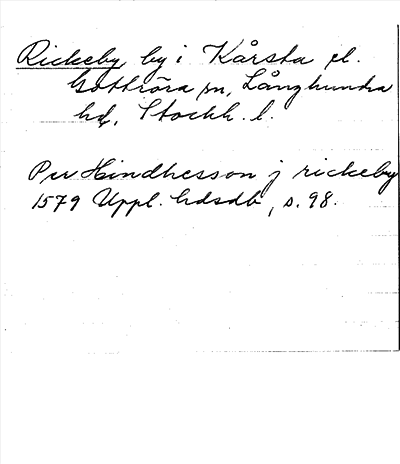 Rickeby by i Kårsta el.
Gottröra sn, Långhundra
hd, Stockh. l.
Per Hindhesson j rickeby
1579 Uppl. hdsdb, s. 98.